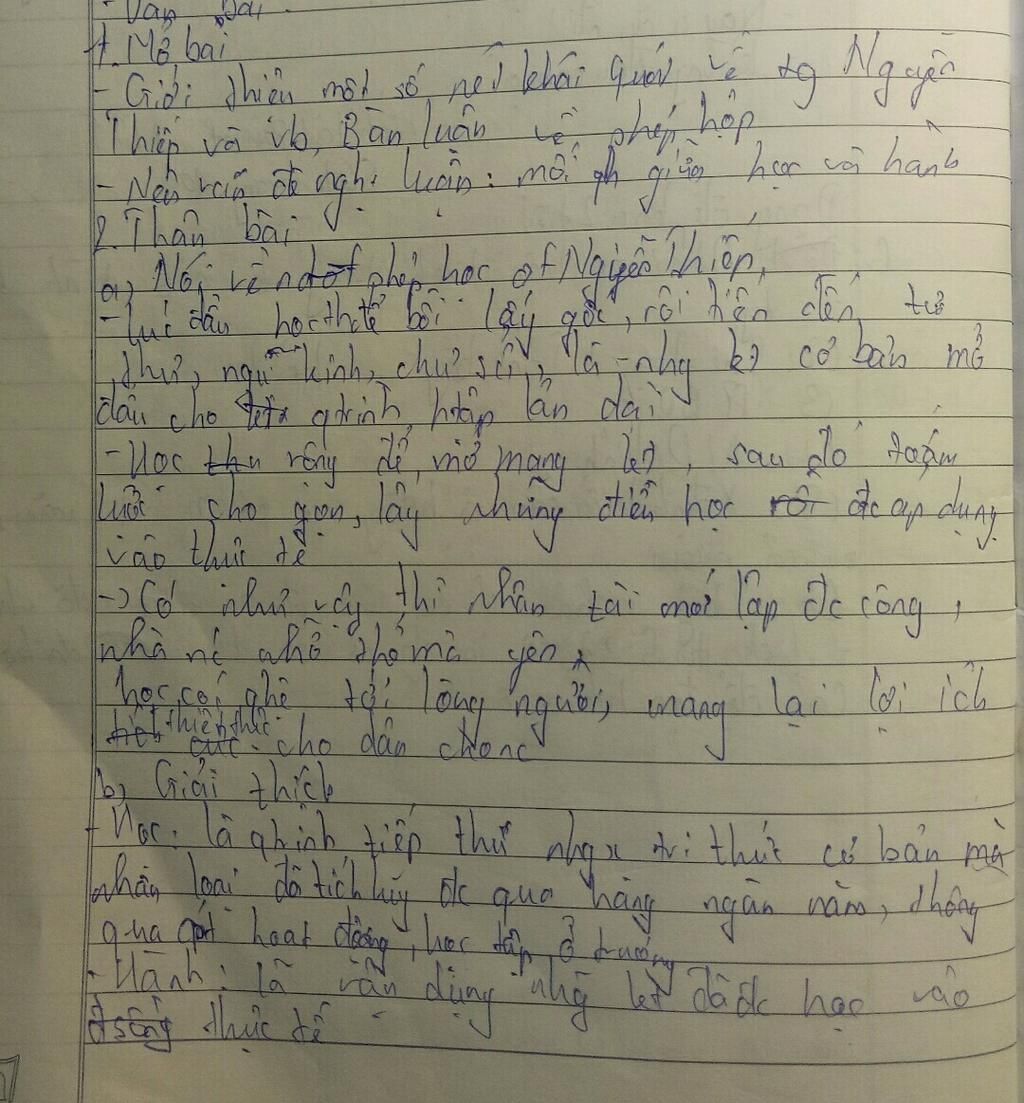 - Văn bài.
1. Mở bài
- Giới thiệu một số nét khái quát về tg Nguyễn
Thiếp và vb, Bàn luận về phép học
- Nêu vấn đề nghị luận: mối qh giữa học và hành
2. Thân bài
a, Nói về phép học of Nguyễn Thiếp,
- Lúc đầu học thì để bồi lấy gốc, rồi tiến đến tứ
thư, ngũ kinh, chư sử, là nhg kt cơ bản mở
đầu cho qtrình htập lâu dài
- Học rộng để mở mang kt, sau đó tóm
lược cho gọn, lấy những điều học đc áp dụng
vào thực tế
-> Có như vậy thì nhân tài mới lập đc công,
nhà nc nhờ thế mà yên
học có ghê tới lòng người, mang lại lợi ích
thiết thực cho dân chonc
b, Giải thích
- Học: là qtrình tiếp thu nhg tri thức cơ bản mà
nhân loại đã tích lũy đc qua hàng ngàn năm, thông
qua hoạt động, học tập ở trường
- Hành: là vận dụng nhg kt đã đc học vào
thực tế